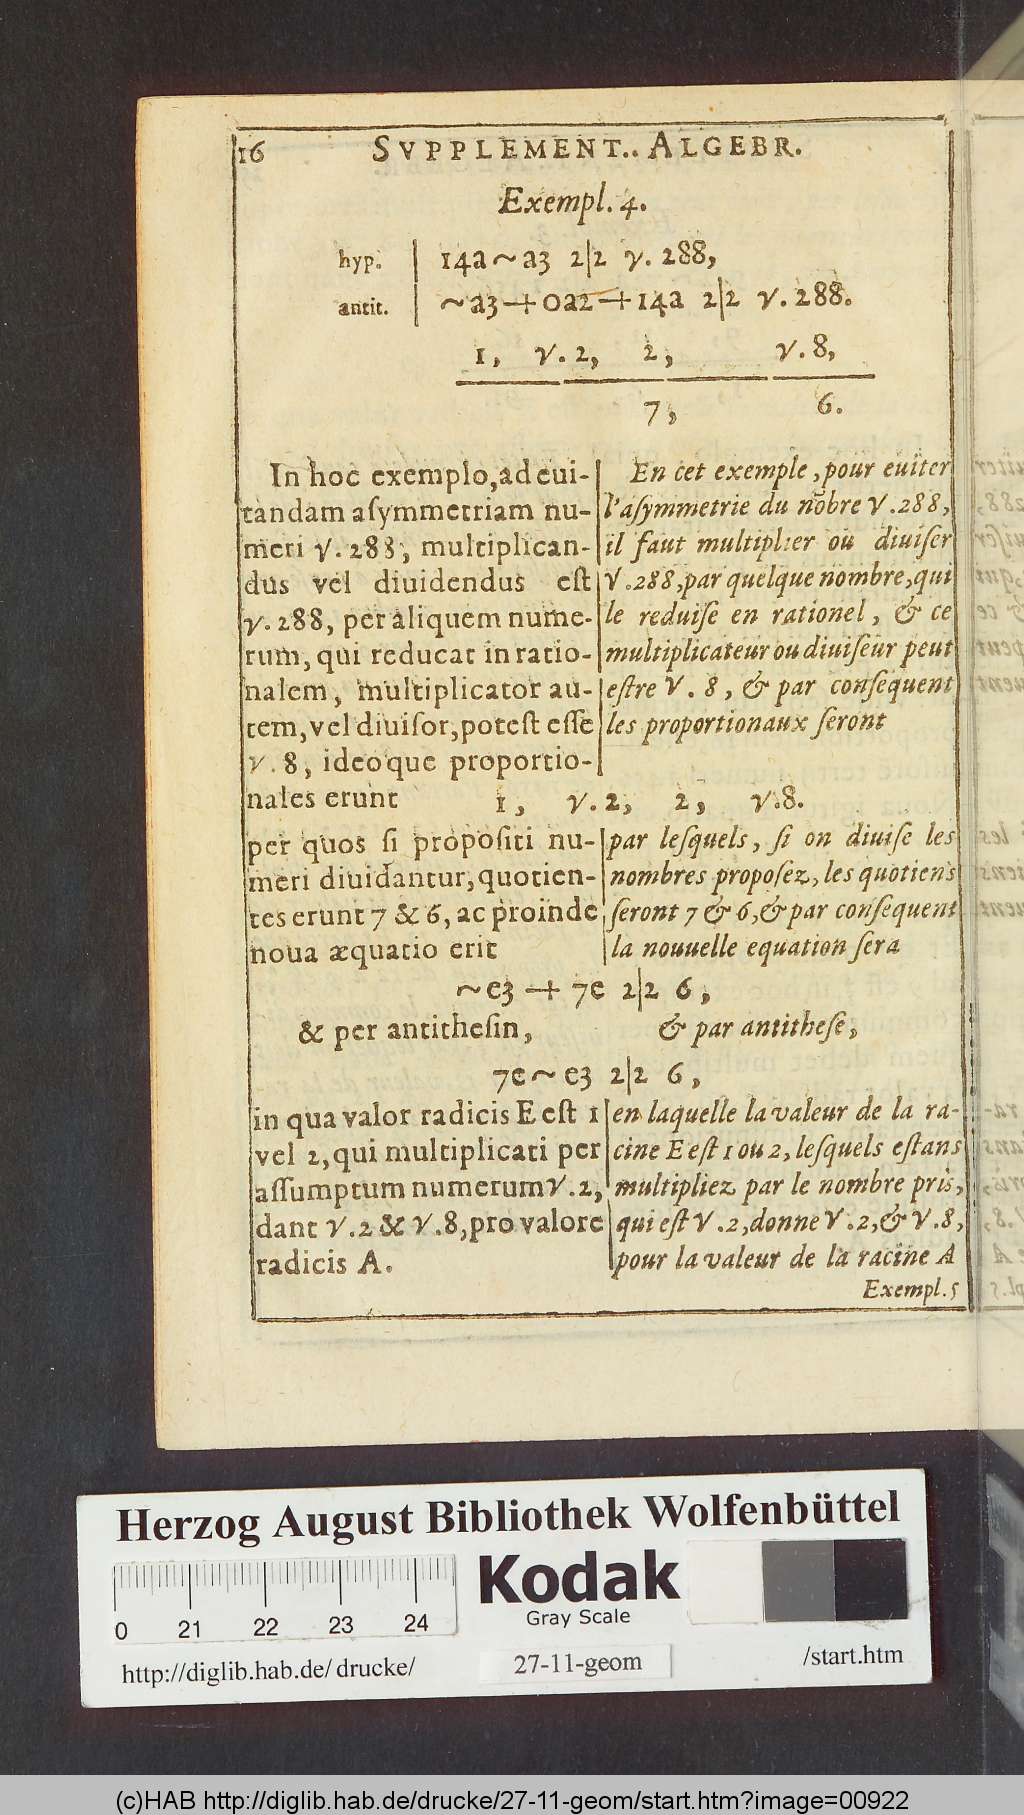 16 SVPPLEMENT.. ALGEBR.
Exempl. 4.
hyp. | 14a ~ a3 2|2 γ. 288,
antit. | ~ a3 + 0a2 + 14a 2|2 γ. 288.
1, γ. 2, 2, γ. 8,
7, 6.
In hoc exemplo, ad eui-
tandam aſymmetriam nu-
meri γ. 288, multiplican-
dus vel diuidendus eſt
γ. 288, per aliquem nume-
rum, qui reducat in ratio-
nalem, multiplicator au-
tem, vel diuiſor, poteſt eſſe
γ. 8, ideoque proportio-
nales erunt
En cet exemple, pour euiter
l'aſymmetrie du nõbre γ. 288,
il faut multiplier ou diuiſer
γ. 288, par quelque nombre, qui
le reduiſe en rationel, & ce
multiplicateur ou diuiſeur peut
eſtre γ. 8, & par conſequent
les proportionaux ſeront
1, γ. 2, 2, γ. 8.
per quos ſi propoſiti nu-
meri diuidantur, quotien-
tes erunt 7 & 6, ac proinde
noua æquatio erit
par leſquels, ſi on diuiſe les
nombres propoſez, les quotiens
ſeront 7 & 6, & par conſequent
la nouuelle equation ſera
~ e3 + 7e 2|2 6,
& per antitheſin, & par antitheſe,
7e ~ e3 2|2 6,
in qua valor radicis E eſt 1
vel 2, qui multiplicati per
aſſumptum numerum γ. 2,
dant γ. 2 & γ. 8, pro valore
radicis A.
en laquelle la valeur de la ra-
cine E eſt 1 ou 2, leſquels eſtans
multipliez par le nombre pris,
qui eſt γ. 2, donne γ. 2, & γ. 8,
pour la valeur de la racine A
Exempl. 5
Herzog August Bibliothek Wolfenbüttel
Kodak
Gray Scale
0 21 22 23 24
http://diglib.hab.de/ drucke/ 27-11-geom /start.htm
(c)HAB http://diglib.hab.de/drucke/27-11-geom/start.htm?image=00922